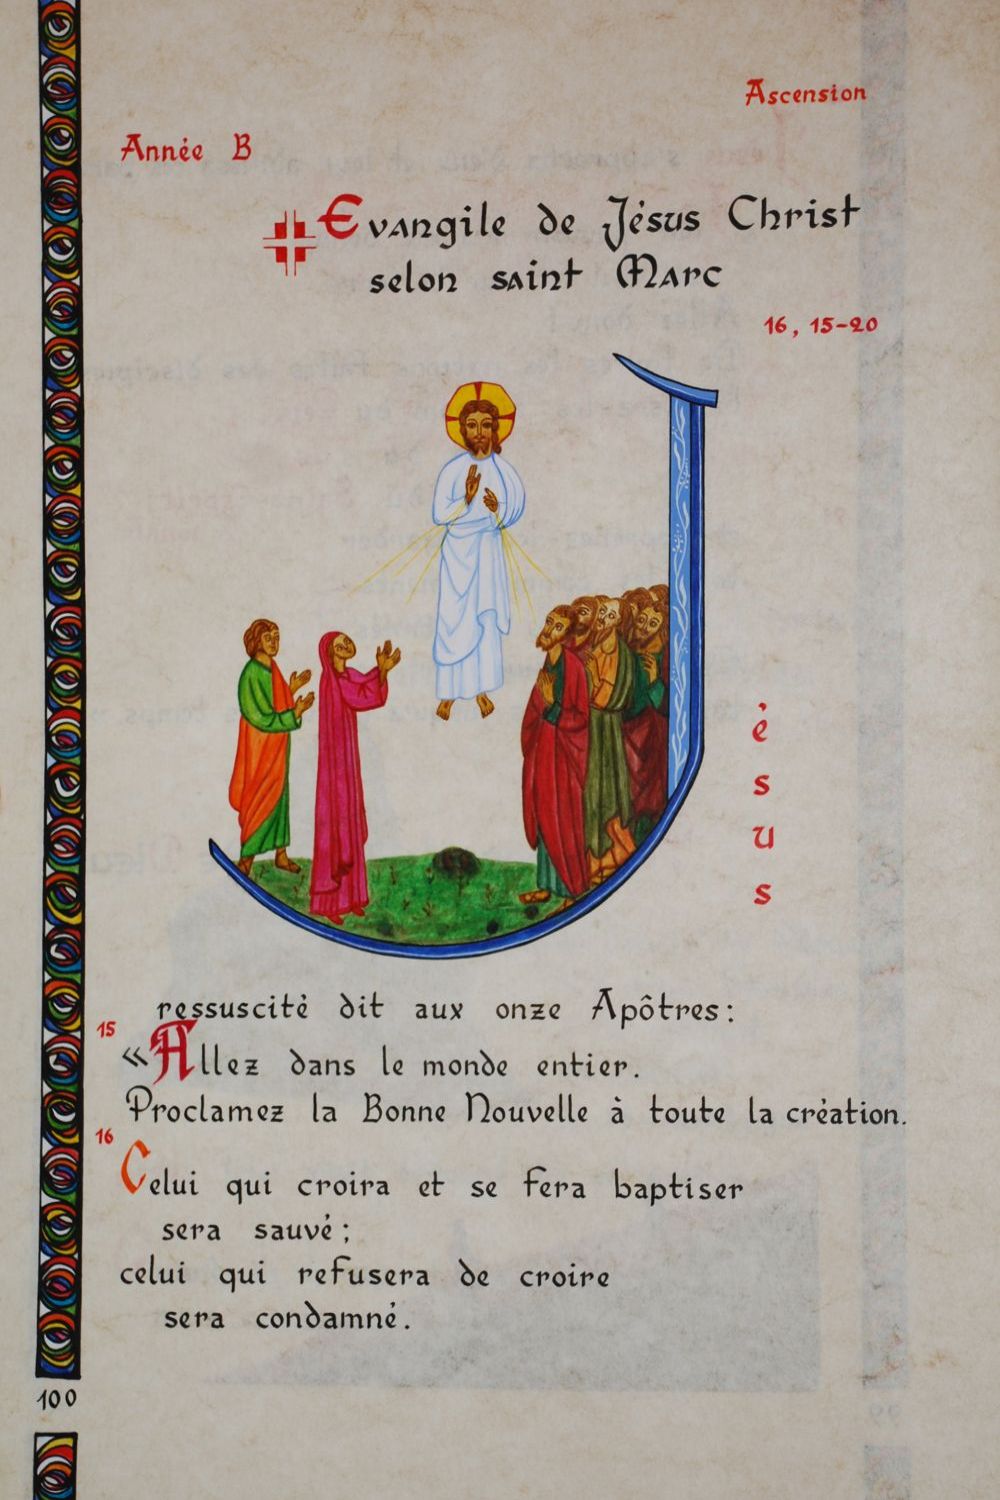 Ascension
Année B
Evangile de Jésus Christ
selon saint Marc
16, 15-20
J
é
s
u
s
ressuscité dit aux onze Apôtres:
15
«Allez dans le monde entier.
Proclamez la Bonne Nouvelle à toute la création.
16
Celui qui croira et se fera baptiser
sera sauvé;
celui qui refusera de croire
sera condamné.
100